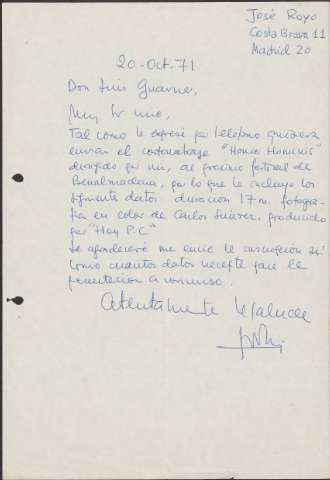 José Royo
Costa Brava 11
Madrid 20
20-Oct. 71
Don Luis
Muy Sr mio,
Tal como le expresé por telefono quisiera
enviar el cortometraje "Homo Hominis"
dirigido por mi, al proximo festival de
Benalmadena, por lo que le incluyo los
siguientes datos: duración 17 m. fotogra-
fia en color de Carlos Suárez, producido
por "Hoy P.C."
Le agradeceré me envie la inscripción asi
como cuantos datos necesite para la
presentacion a concurso.
Atentamente le saluda